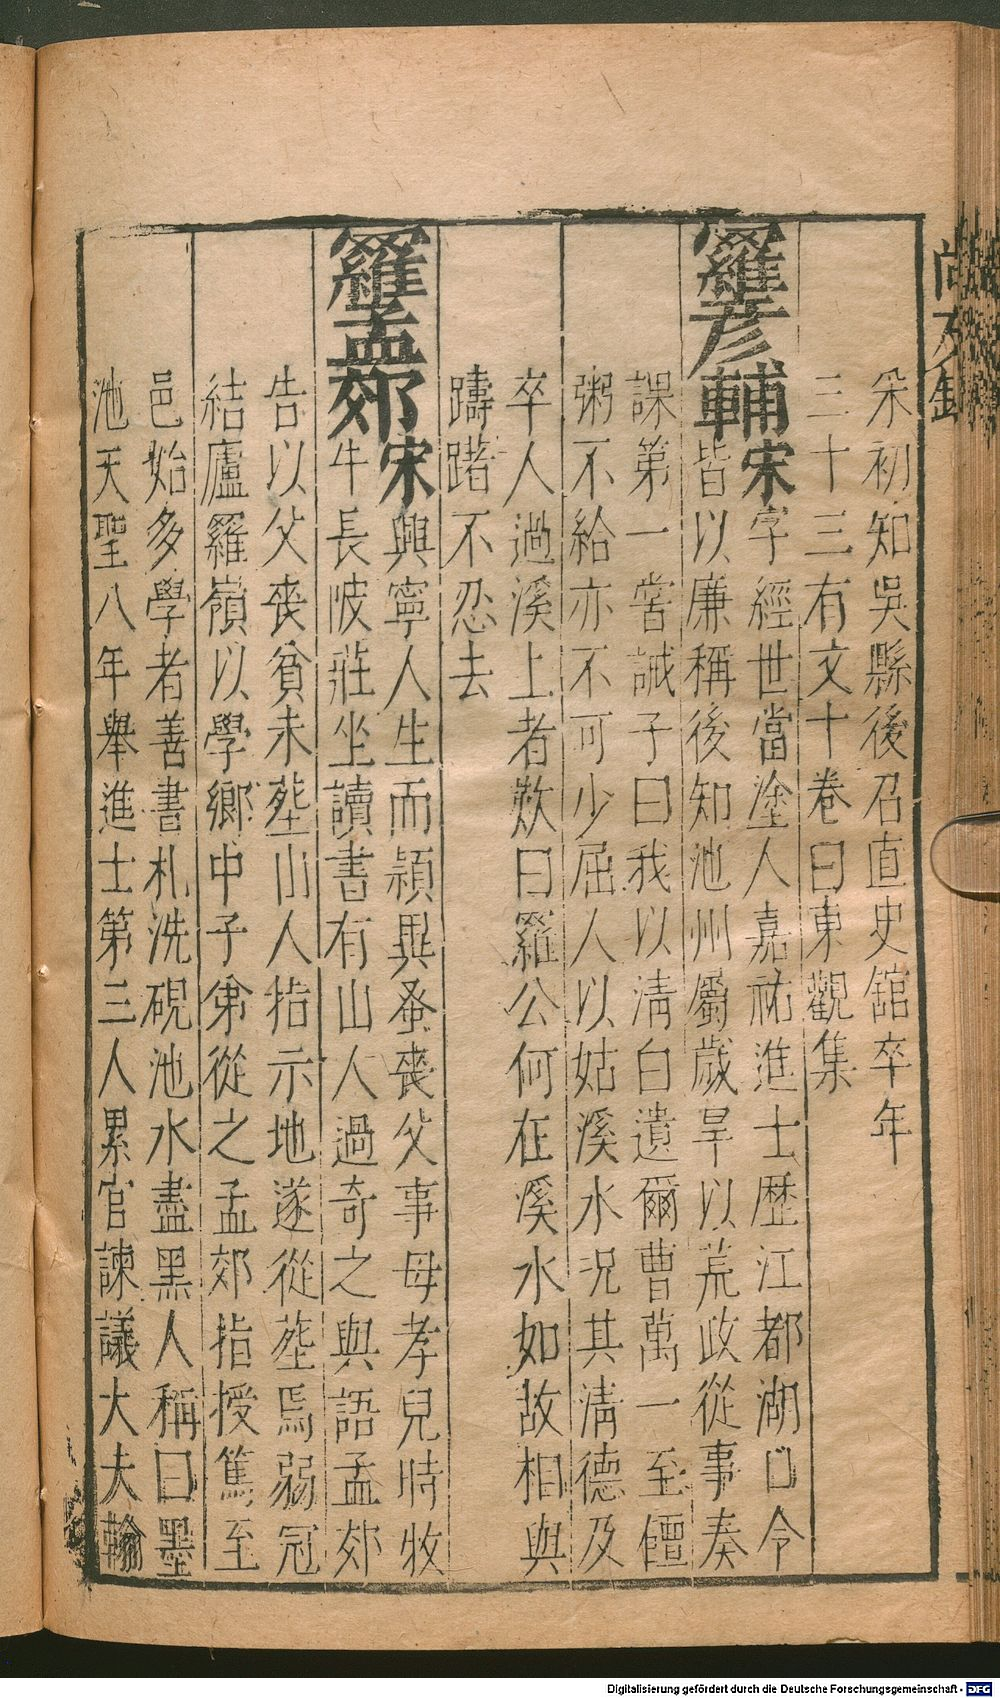 宋初知吳縣後召直史舘卒年
三十三有文十卷曰東觀集
羅彦輔宋字經世當塗人嘉祐進士歷江都湖口令
皆以廉稱後知池州屬歲旱以荒政從事奏
課第一嘗誡子曰我以清白遺爾曹萬一至饘
粥不給亦不可少屈人以姑溪水况其清德及
卒人過溪上者歎曰羅公何在溪水如故相與
躊躇不忍去
羅孟郊宋興寧人生而穎異蚤喪父事母孝兒時牧
牛長陂莊坐讀書有山人過奇之與語孟郊
告以父喪貧未塟山人指示地遂從塟焉弱冠
結廬羅嶺以學鄉中子弟從之孟郊指授篤至
邑始多學者善書札洗硯池水盡黑人稱曰墨
池天聖八年舉進士第三人累官諫議大夫翰
Digitalisierung gefördert durch die Deutsche Forschungsgemeinschaft - DFG